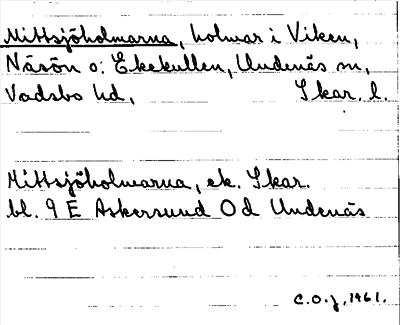 Mittsjöholmarna, holmar i Viken,
Näsön o. Ekekullen, Undenäs sn,
Vadsbo hd, Skar. l.
Mittsjöholmarna, ek. Skar.
bl. 9 E Askersund Od Undenäs
C.O.J. 1961.